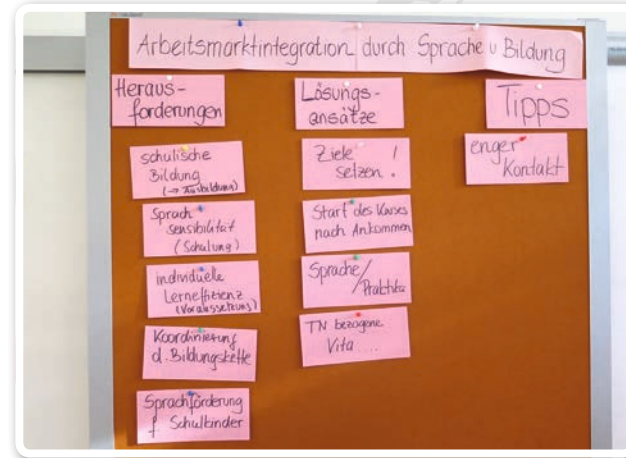 Arbeitsmarktintegration durch Sprache u Bildung
Heraus-
forderungen
schulische
Bildung
(→ Ausbildung)
Sprach
sensibilität
(Schulung)
individuelle
Lerneffizienz
(Voraussetzung)
Koordinierung
d. Bildungskette
Sprachförderung
f Schulkinder
Lösungs-
ansätze
Ziele
setzen !
Start des Kurses
nach Ankommen
Sprache/
Praktika
TN bezogene
Vita....
Tipps
enger
Kontakt